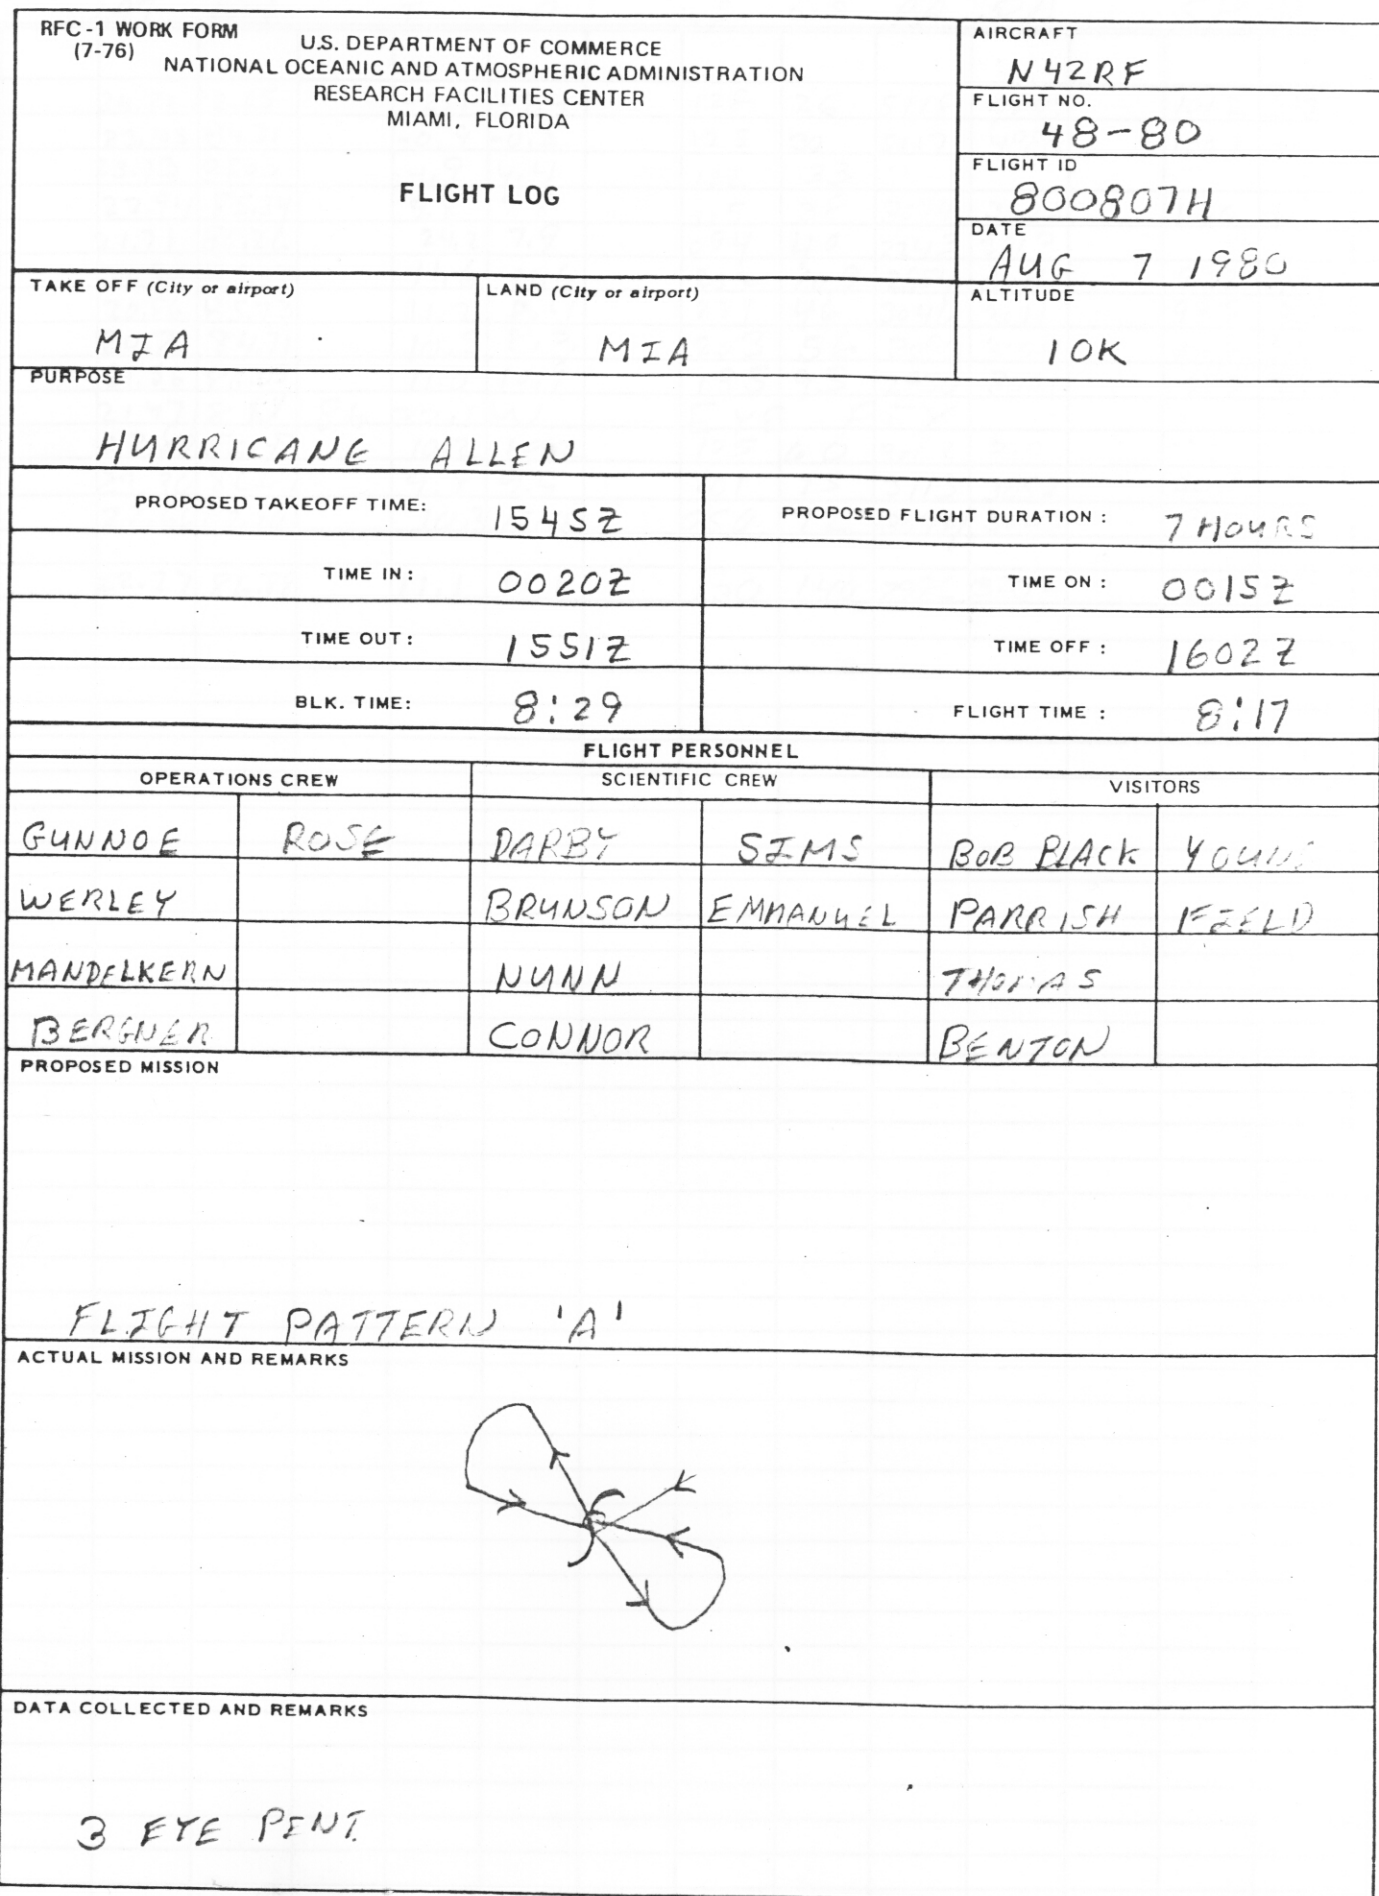 RFC-1 WORK FORM
(7-76)
U.S. DEPARTMENT OF COMMERCE
NATIONAL OCEANIC AND ATMOSPHERIC ADMINISTRATION
RESEARCH FACILITIES CENTER
MIAMI, FLORIDA
FLIGHT LOG
AIRCRAFT
N42RF
FLIGHT NO.
48-80
FLIGHT ID
800807H
DATE
AUG 7 1980
TAKE OFF (City or airport)
MIA
LAND (City or airport)
MIA
ALTITUDE
10K
PURPOSE
HURRICANE ALLEN
PROPOSED TAKEOFF TIME: 1545Z
PROPOSED FLIGHT DURATION : 7 HOURS
TIME IN: 0020Z
TIME ON : 0015Z
TIME OUT: 1551Z
TIME OFF : 1602Z
BLK. TIME: 8:29
FLIGHT TIME : 8:17
FLIGHT PERSONNEL
OPERATIONS CREW SCIENTIFIC CREW VISITORS
GUNNOE ROSE DARBY SIMS BOB BLACK YOUNG
WERLEY BRUNSON EMMANUEL PARRISH FIELD
MANDELKERN NUNN THOMAS
BERGNER CONNOR BENTON
PROPOSED MISSION
FLIGHT PATTERN 'A'
ACTUAL MISSION AND REMARKS
DATA COLLECTED AND REMARKS
3 EYE PENT.